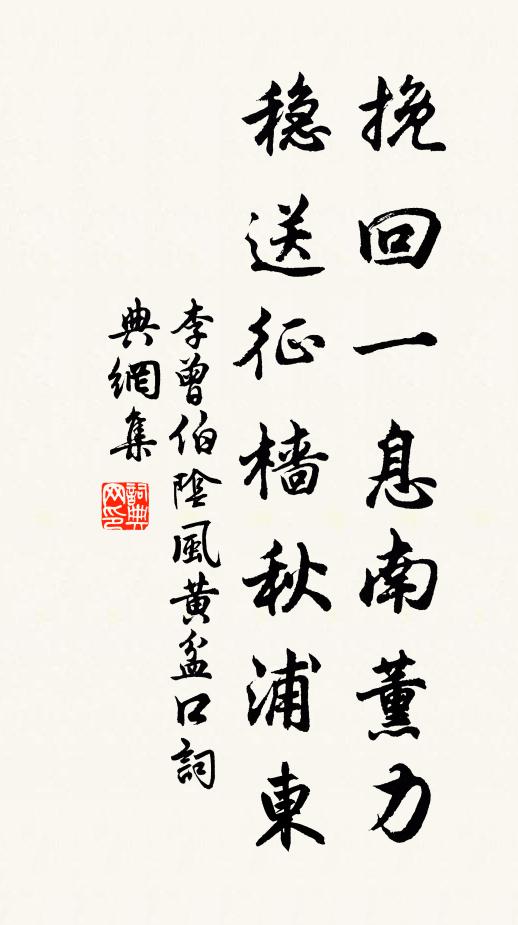 挽回一息南薰力
稳送征樯秋浦東
李曾伯陰風黄盆口詞
典網集
詞典
网印